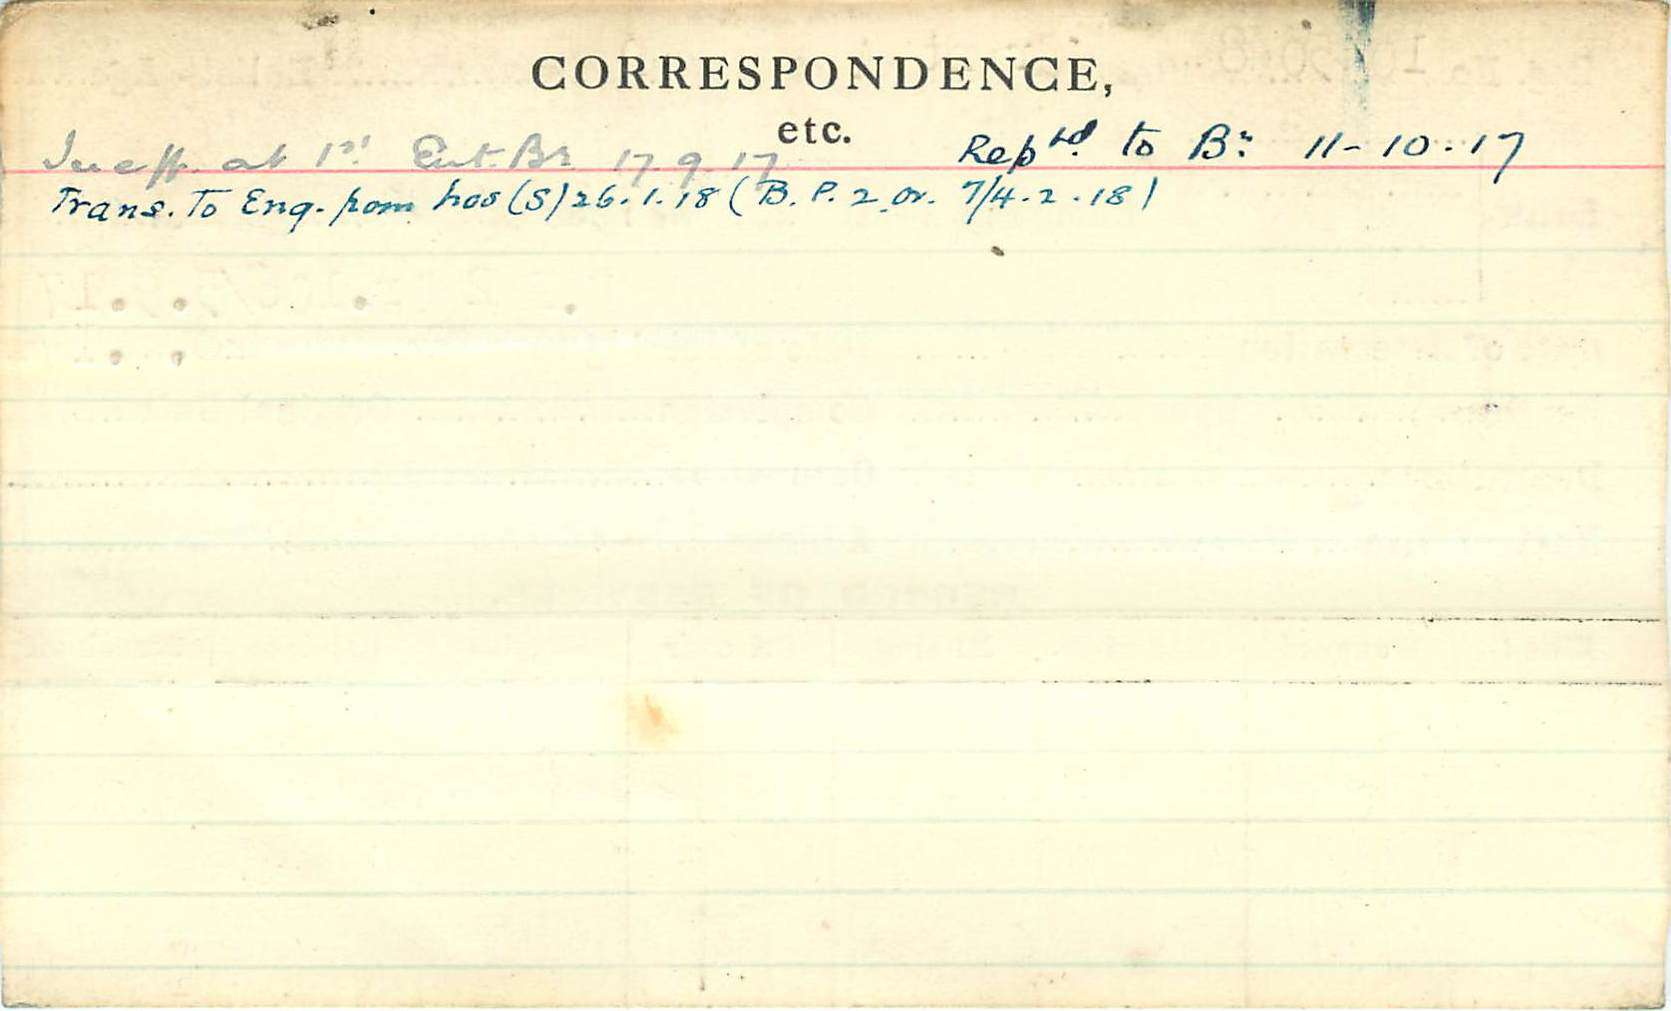 CORRESPONDENCE,
etc.
Ineff. at 1st Ent. Bn 17.9.17 Reptd. to Bn: 11-10-17
Trans. To Eng. from hos (S) 26.1.18 (B.P. 2 Or. 7/4.2.18)